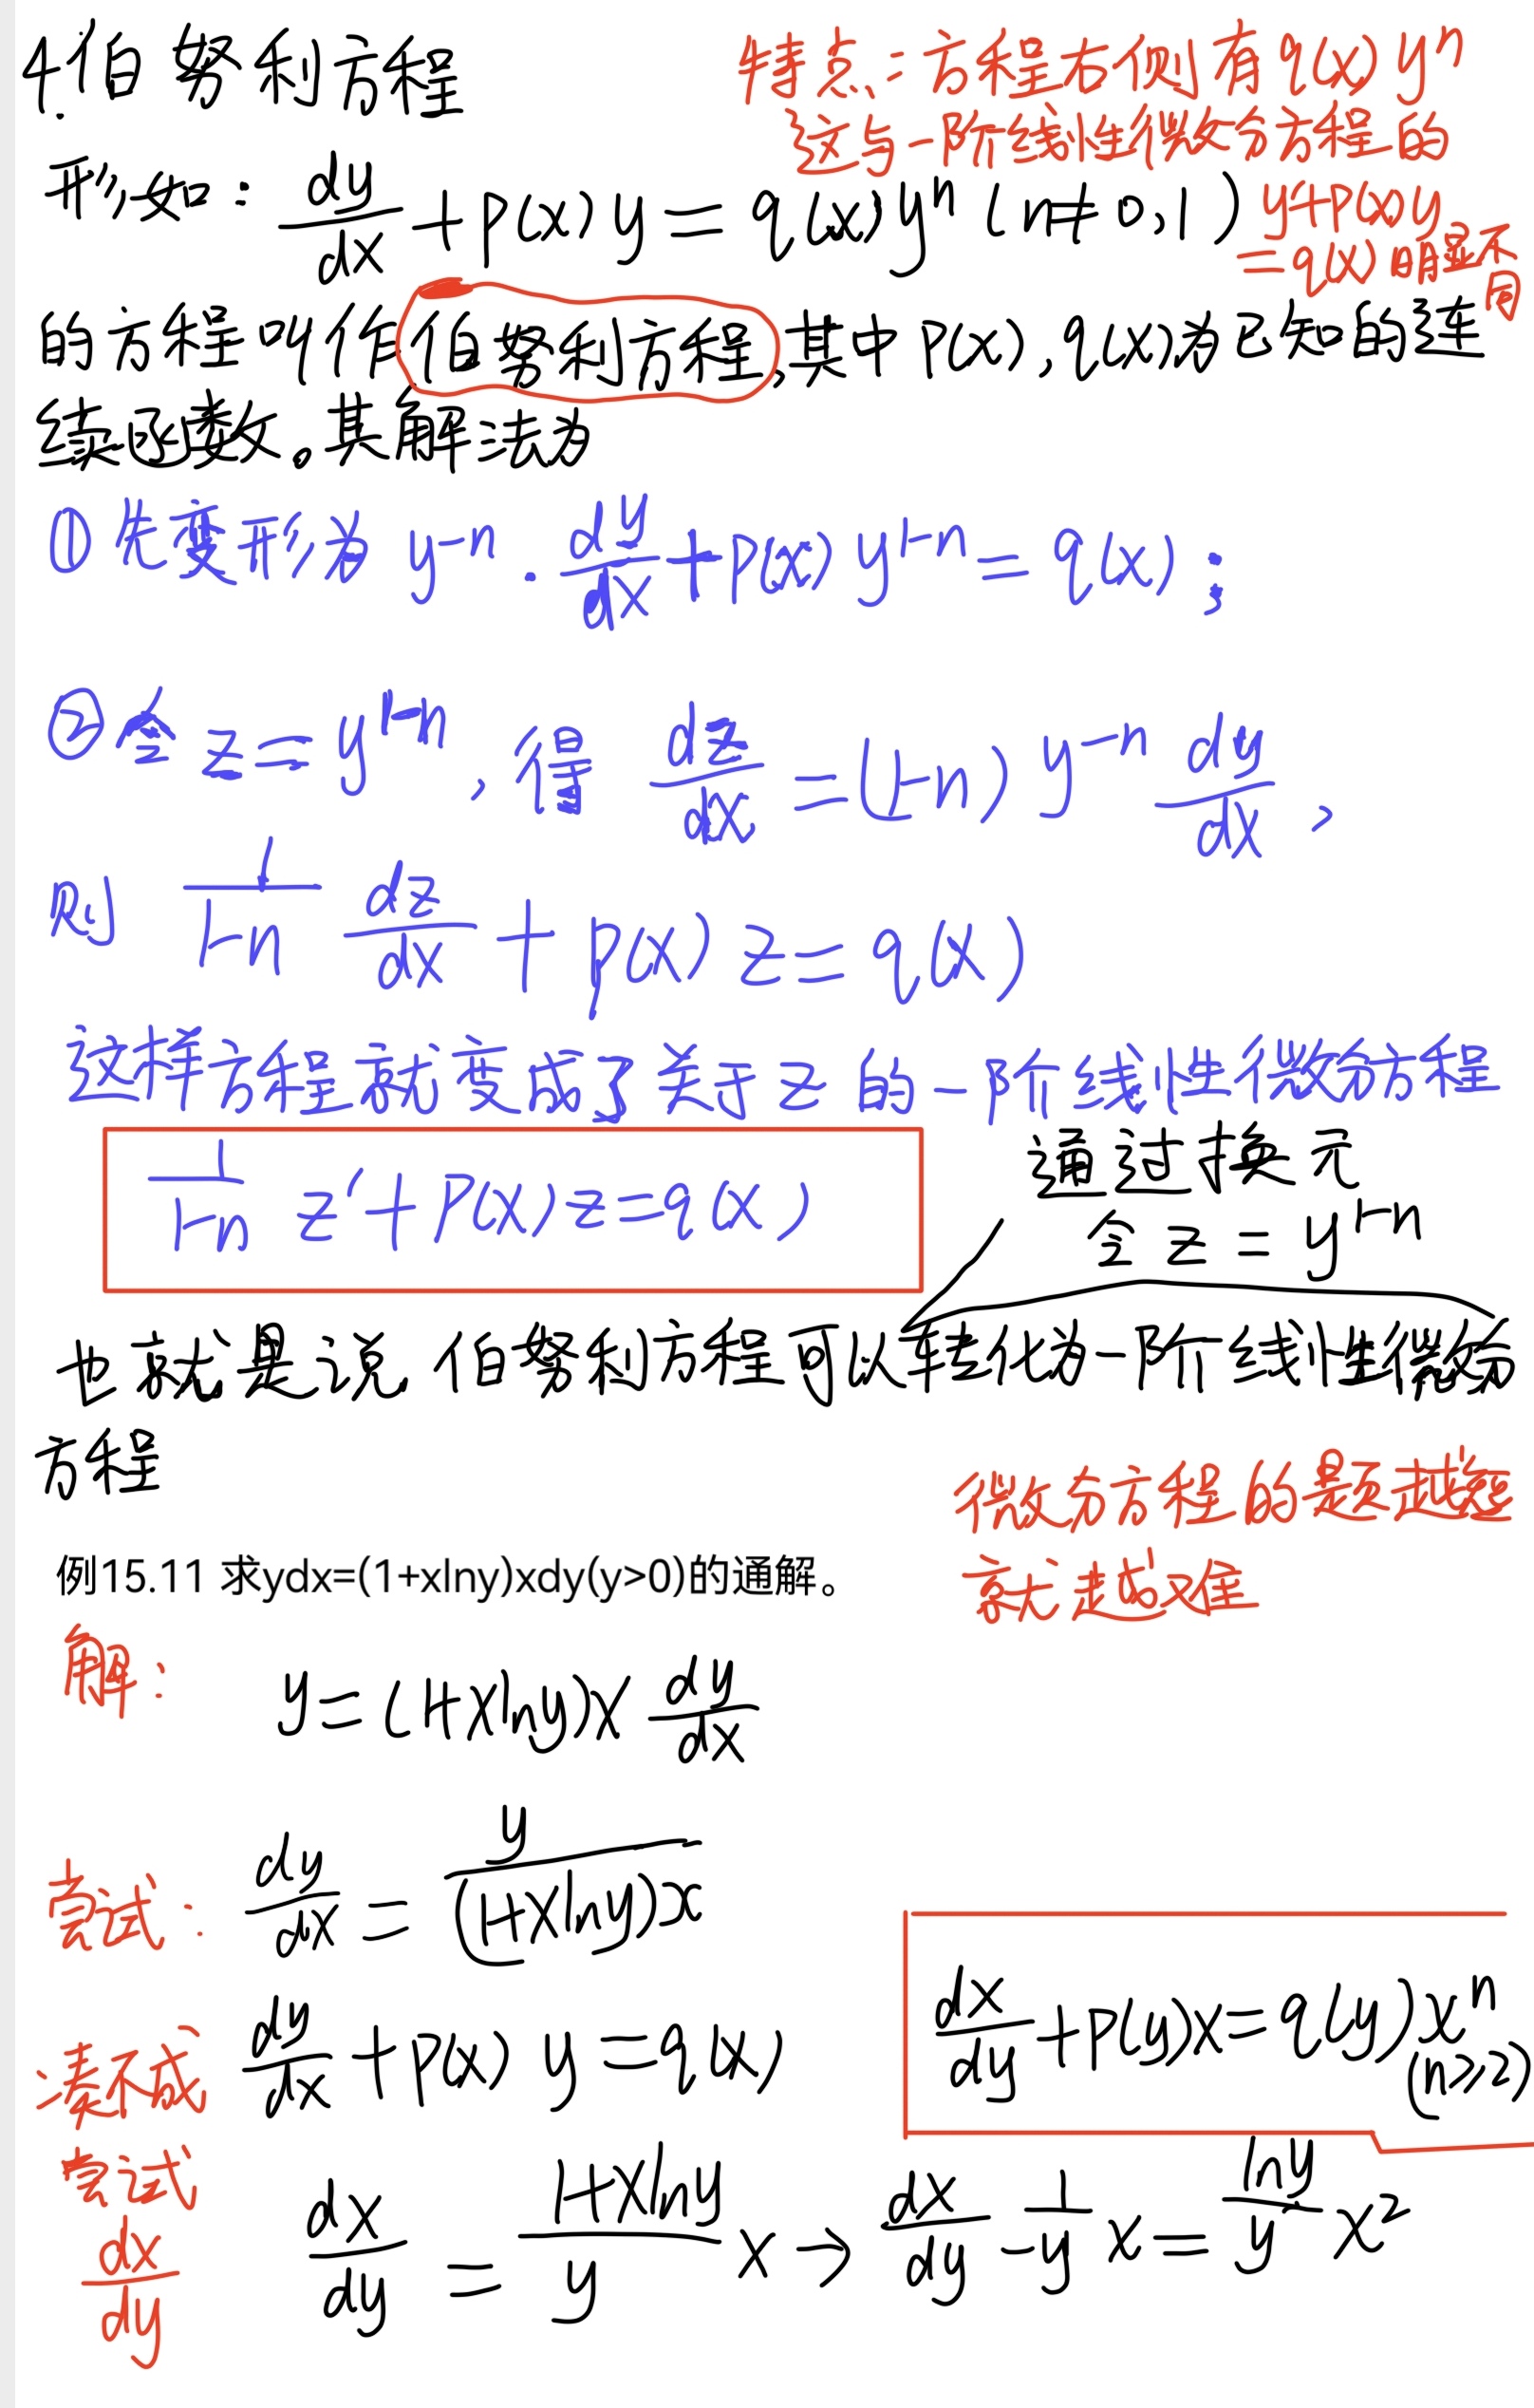 4.伯努利方程
特点：方程右侧有q(x)yⁿ
这与一阶线性微分方程的
y'+p(x)y
=q(x)明显不
同
形如：dy/dx+p(x)y=q(x)yⁿ(n≠0,1)
的方程叫作伯努利方程,其中p(x),q(x)为已知的连
续函数。其解法为
①先变形为 y⁻ⁿ·dy/dx+p(x)y¹⁻ⁿ=q(x);
②令 z=y¹⁻ⁿ,得 dz/dx=(1-n)y⁻ⁿ dy/dx,
则 1/(1-n) dz/dx+p(x)z=q(x)
这样方程就变成了关于z的一阶线性微分方程
1/(1-n) z'+p(x)z=q(x)
通过换元
令z=y¹⁻ⁿ
也就是说伯努利方程可以转化为一阶线性微分
方程
微分方程的题越难
就越难
例15.11 求ydx=(1+xlny)xdy(y>0)的通解。
解：
y=(1+xlny)x dy/dx
尝试：
dy/dx=y/((1+xlny)x)
凑不成
dy/dx+p(x)y=q(x)
dx/dy+p(y)x=q(y)xⁿ
(n≥2)
尝试
dx/dy
dx/dy=(1+xlny)/y x→dx/dy-1/y x=lny/y x²